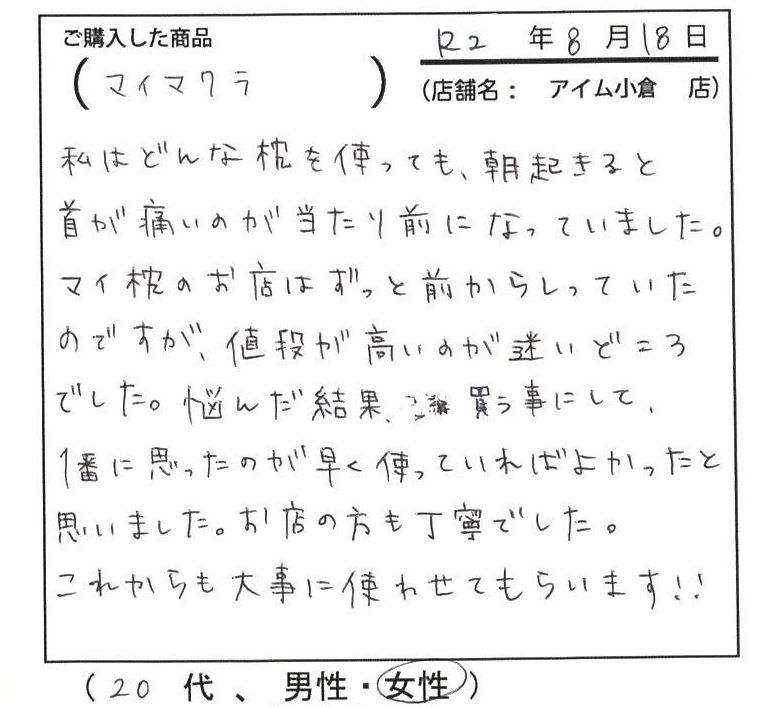 ご購入した商品
(マイマクラ)
R2 年 8 月 18 日
(店舗名: アイム小倉 店)
私はどんな枕を使っても、朝起きると
首が痛いのが当たり前になっていました。
マイ枕のお店はずっと前からしっていた
のですが、値段が高いのが迷いどころ
でした。悩んだ結果、買う事にして、
1番に思ったのが早く使っていればよかったと
思いました。お店の方も丁寧でした。
これからも大事に使わせてもらいます!!
(20 代、男性・女性)